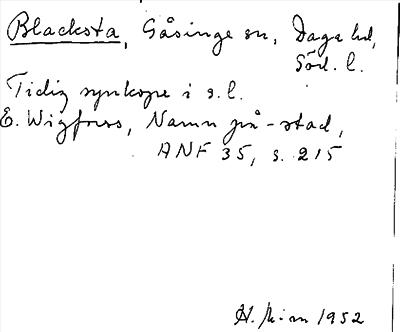 Blacksta, Gåsinge sn, Daga hd,
Söd. l.
Tidig synkope i s.l.
E. Wigforss, Namn på -stad,
ANF 35, s. 215
1952